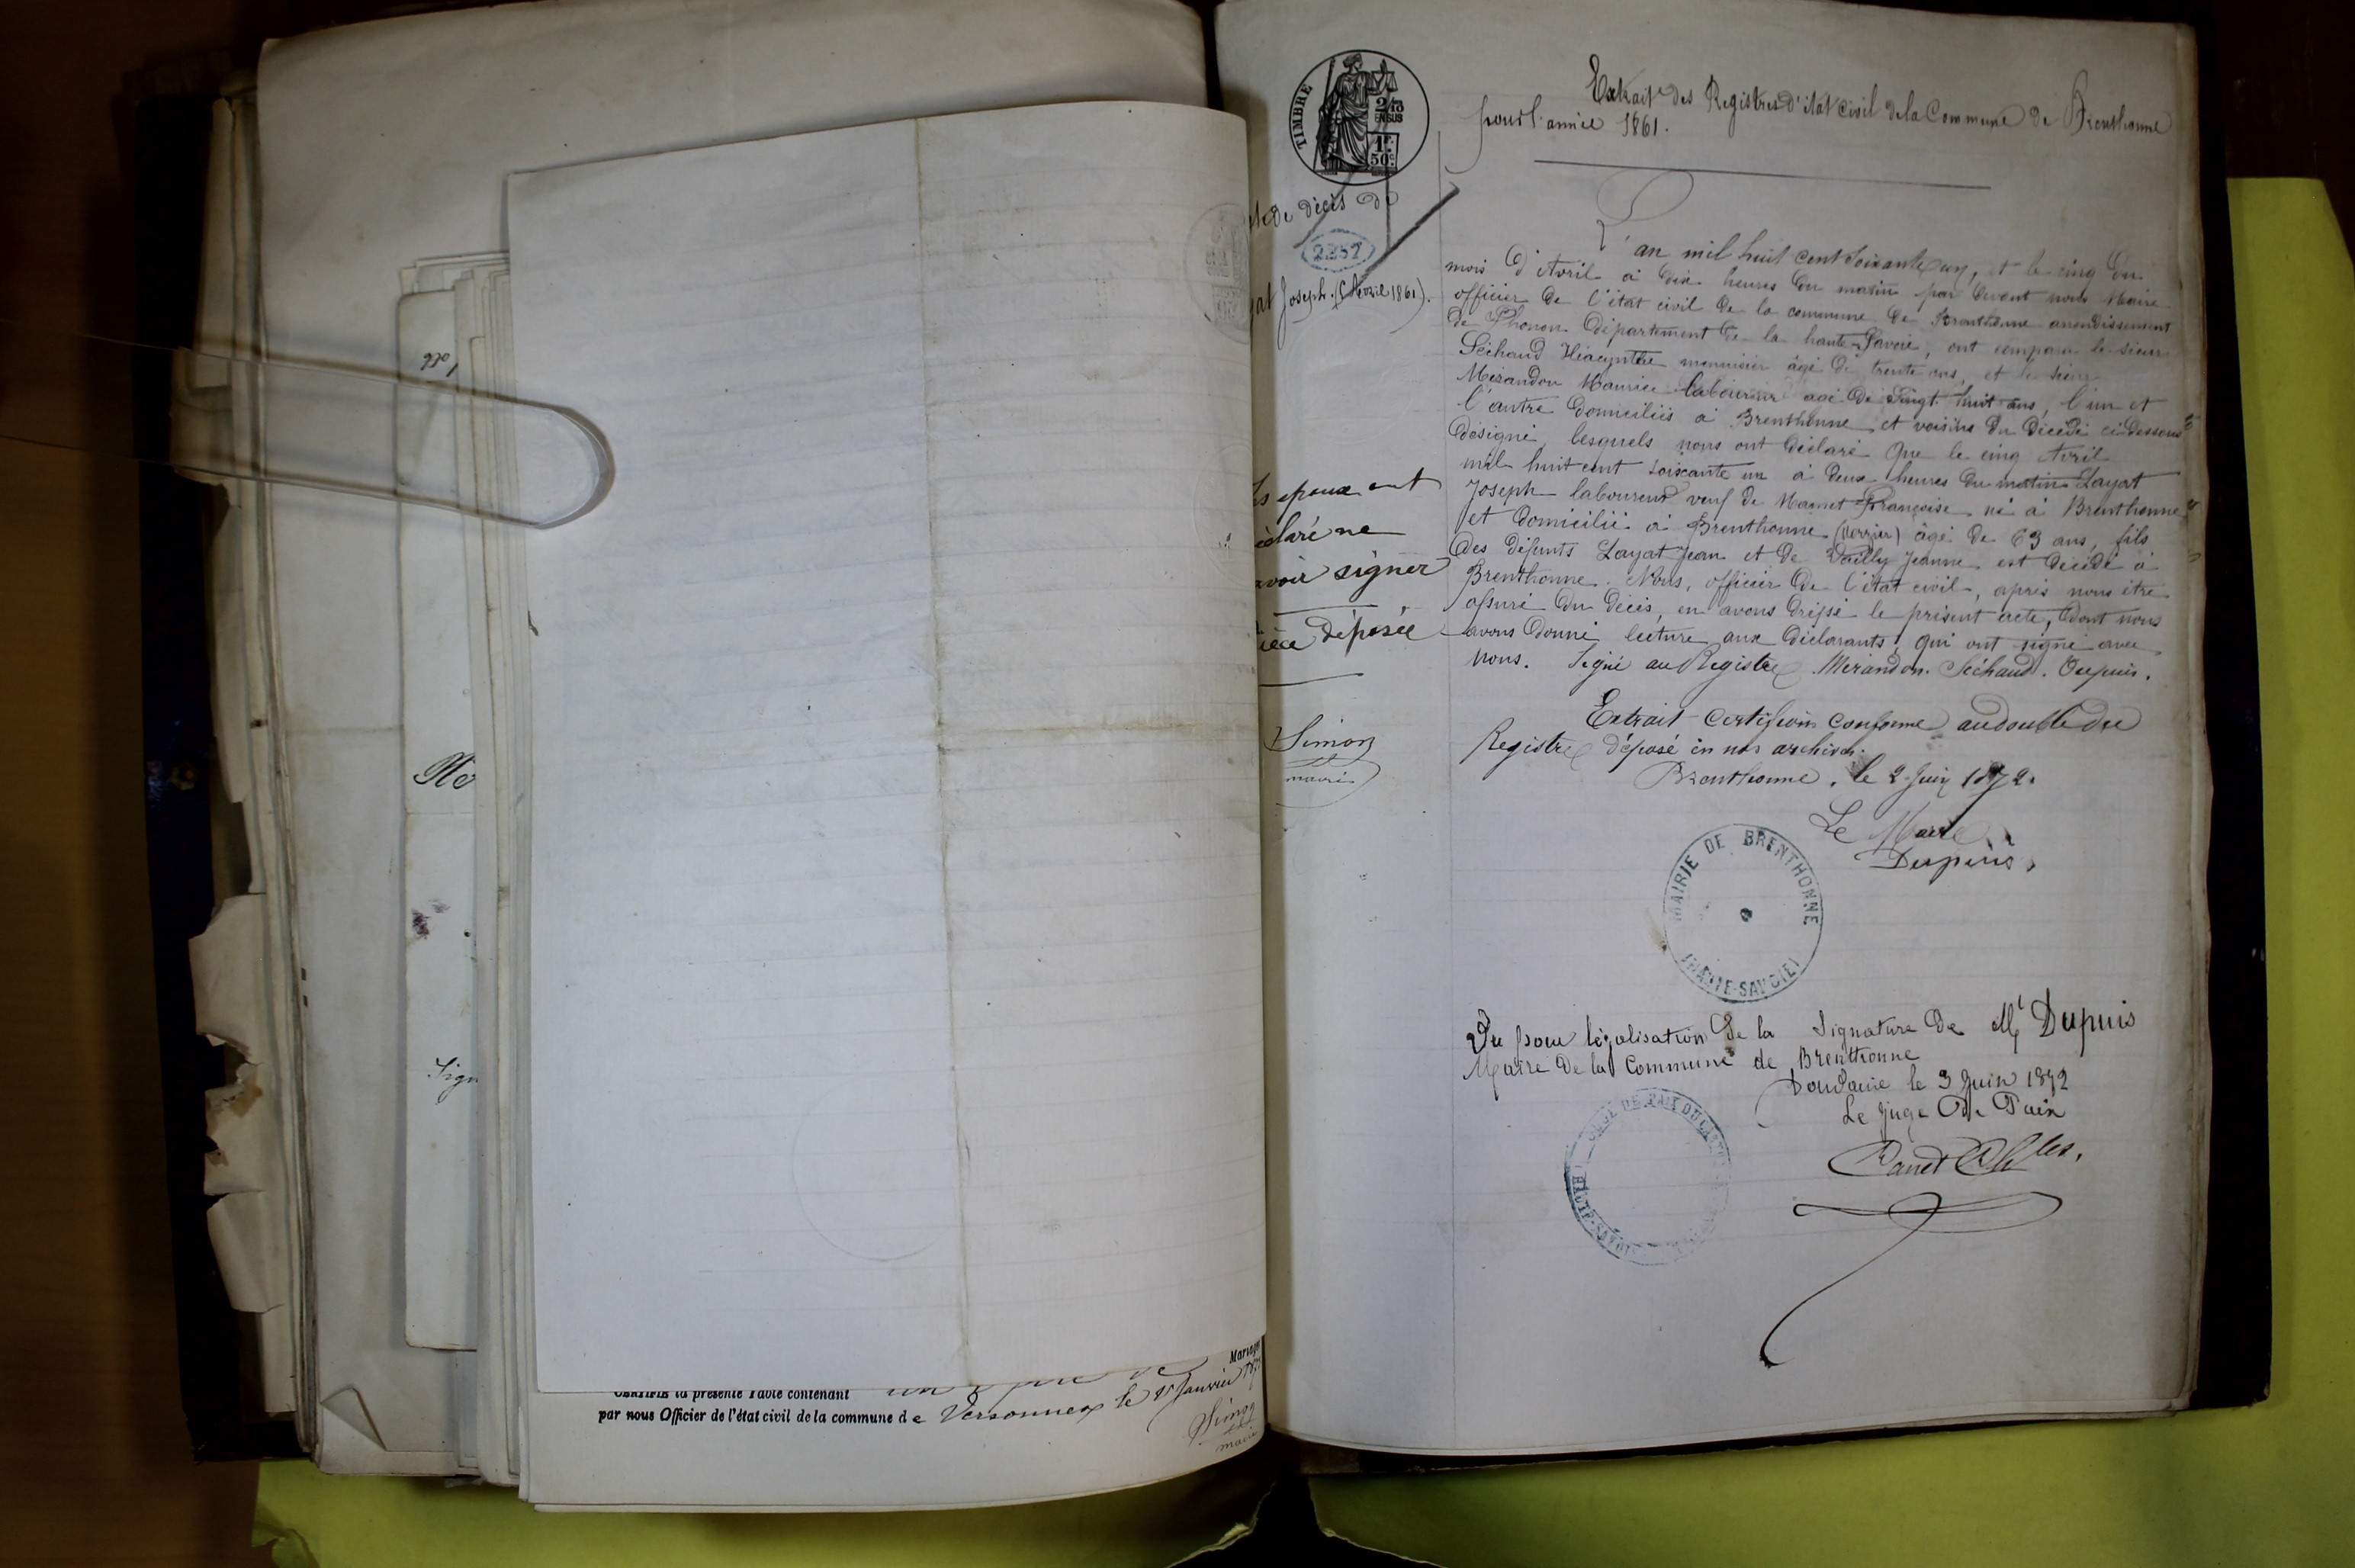 TIMBRE
2/10
EN SUS
1F.
50c.
Extrait des Registres d'état civil de la Commune de Brenthonne
pour l'année 1861.
de décès de
2257
Joseph. (5 Avril 1861).
L'an mil huit cent soixante un, et le cinq du
mois d'Avril à dix heures du matin par devant nous Maire
officier de l'état civil de la commune de Brenthonne arrondissement
de Thonon département de la haute-Savoie, ont comparu le sieur
Séchaud Hiacynthe menuisier âgé de trente ans, et le sieur
Mérandon Maurice laboureur agé de vingt huit ans, l'un et
l'autre domiciliés à Brenthonne et voisins du décédé ci dessous
désigné, lesquels nous ont déclaré que le cinq Avril
mil huit cent soixante un à deux heures du matin Layat
Joseph laboureur veuf de Mamet Françoise né à Brenthonne
et domicilié à Brenthonne (vorzier) âgé de 63 ans, fils
des défunts Layat Jean et de Vailly Jeanne est décédé à
Brenthonne. Nous, officier de l'état civil, après nous être
assuré du décès, en avons dressé le présent acte, dont nous
avons donné lecture aux déclarants, qui ont signé avec
nous. Signé au Registre Mérandon. Séchaud. Dupuis.
epoux ont
signer
déposée
Simon
maire
Extrait certifions conforme au double du
Registre déposé en nos archives.
Brenthonne, le 2 Juin 1872.
Le Maire
Dupuis.
MAIRIE DE BRENTHONNE
(HAUTE-SAVOIE)
Vu pour légalisation de la Signature de Mr Dupuis
Maire de la Commune de Brenthonne
Douvaine le 3 Juin 1872
Le Juge De Paix
HAUTE-SAVOIE
No
Sign
Mariage
CERTIFIÉ la présente Table contenant
par nous Officier de l'état civil de la commune de Versonnex le 1er Janvier
Simon
maire